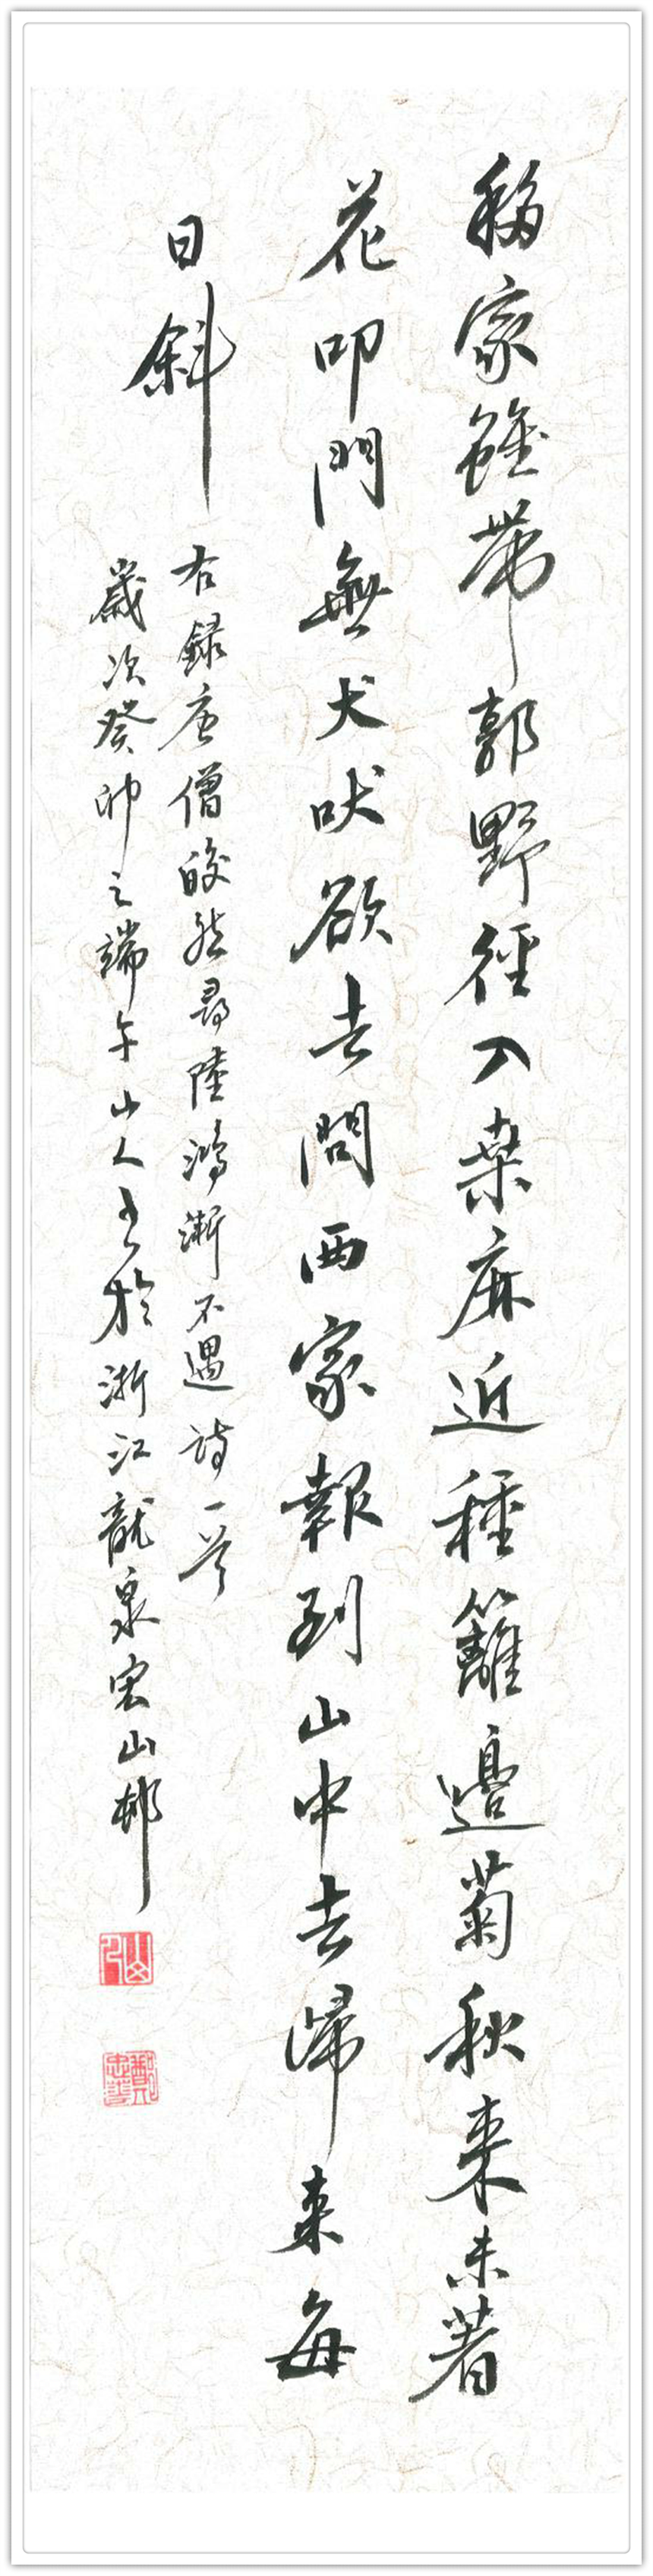 移家雖帶郭野徑入桑麻近種籬邊菊秋來未著
花叩門無犬吠欲去問西家報到山中去歸來每
日斜
右録唐僧皎然尋陸鴻漸不遇詩一首
歲次癸卯之端午山人書於浙江龍泉宏山邨
山人
鄭忠華